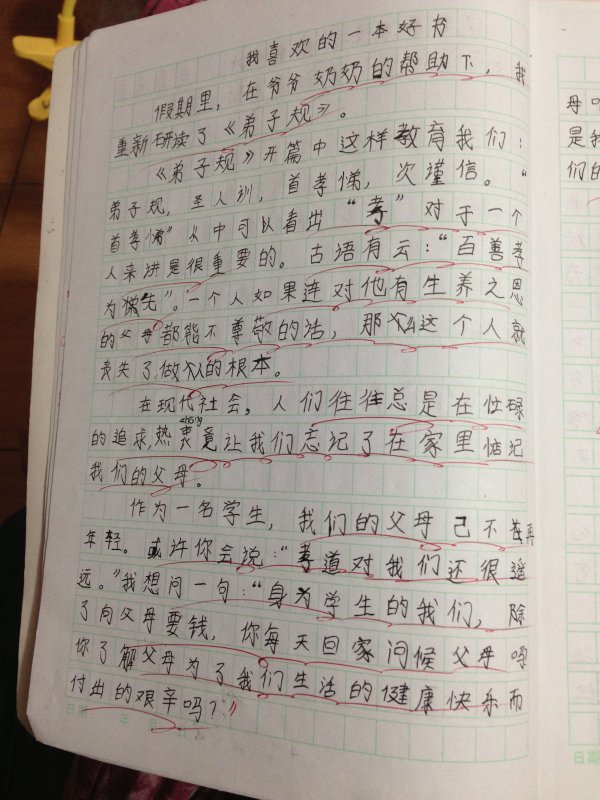 我喜欢的一本好书
假期里，在爷爷奶奶的帮助下，我
重新研读了《弟子规》。
《弟子规》开篇中这样教育我们：“
弟子规，圣人训，首孝悌，次谨信。”
首孝悌”从中可以看出“孝”对于一个
人来讲是很重要的。古语有云：“百善孝
为先”。一个人如果连对他有生养之恩
的父母都能不尊敬的话，那么这个人就
丧失了做人的根本。
在现代社会，人们往往总是在忙碌
的追求，热衷竟让我们忘记了在家里惦记
我们的父母。
作为一名学生，我们的父母已不再
年轻。或许你会说：“孝道对我们还很遥
远。”我想问一句：“身为学生的我们，除
了向父母要钱，你每天回家问候父母吗
你了解父母为了我们生活的健康快乐而
付出的艰辛吗？”
母
是我
们的
日期
年
日期